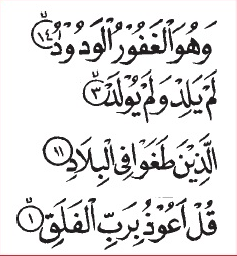 وَهُوَ الْغَفُورُ الْوَدُودُ ۝١٤
لَمْ يَلِدْ وَلَمْ يُولَدْ ۝٣
الَّذِينَ طَغَوْا فِي الْبِلَادِ ۝١١
قُلْ أَعُوذُ بِرَبِّ الْفَلَقِ ۝١